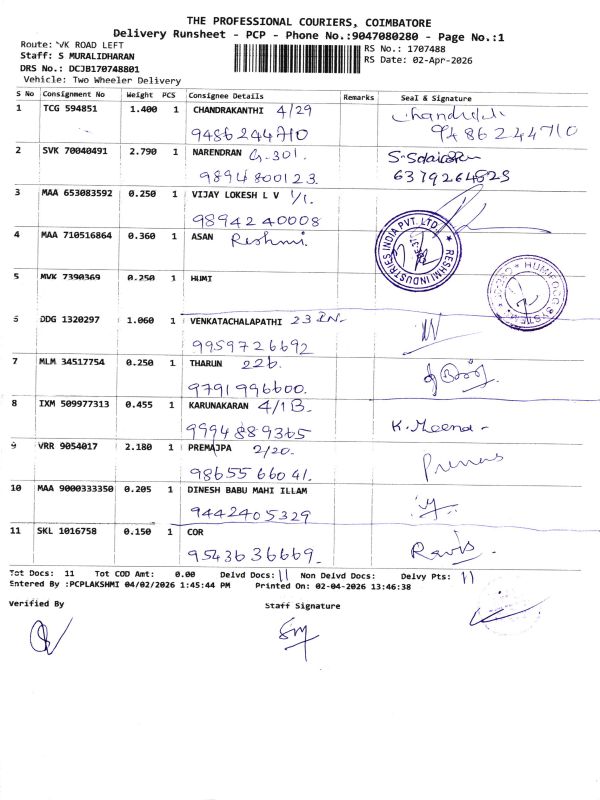 THE PROFESSIONAL COURIERS, COIMBATORE
Delivery Runsheet - PCP - Phone No.:9047080280 - Page No.:1
Route: VK ROAD LEFT
RS No.: 1707488
Staff: S MURALIDHARAN
RS Date: 02-Apr-2026
DRS No.: DCJB170748801
Vehicle: Two Wheeler Delivery
S No Consignment No Weight PCS Consignee Details Remarks Seal & Signature
1 TCG 594851 1.400 1 CHANDRAKANTHI 4/29
9486244710 9486244710
2 SVK 70040491 2.790 1 NARENDRAN G-301.
9894800123 6379264525
3 MAA 653083592 0.250 1 VIJAY LOKESH L V 1/1.
9894240008
4 MAA 710516864 0.360 1 ASAN Reshmi. RESHMI INDUSTRIES INDIA PVT. LTD.
5 MVK 7390369 0.250 1 HUMI
6 DDG 1320297 1.060 1 VENKATACHALAPATHI 23
9959726692
7 MLM 34517754 0.250 1 THARUN 22b.
9791996600.
8 IXM 509977313 0.455 1 KARUNAKARAN 4/1B.
9994889365 K. Meena
9 VRR 9054017 2.180 1 PREMAJPA 2/20.
9865566041.
10 MAA 9000333350 0.205 1 DINESH BABU MAHI ILLAM
9442405329
11 SKL 1016758 0.150 1 COR
9543636669. Ravis.
Tot Docs: 11 Tot COD Amt: 0.00 Delvd Docs: 11 Non Delvd Docs: Delvy Pts: 11
Entered By :PCPLAKSHMI 04/02/2026 1:45:44 PM Printed On: 02-04-2026 13:46:38
Verified By Staff Signature